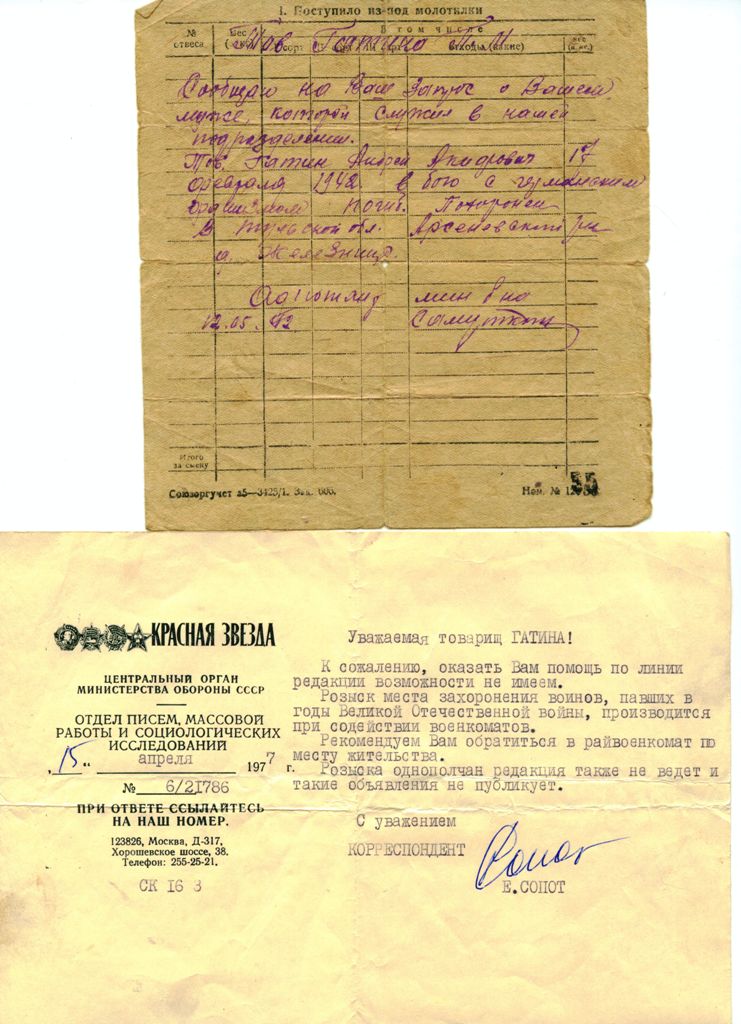 1. Поступило из-под молотилки
№ отвеса
Вес
В том числе
сорт
Тов Гатино
Сообщаю на Ваш запрос о Вашем
муже, которой служил в нашей
подразделении.
Тов. Гатин Андрей 17
февраля 1942 в бою с германским
погиб. Похоронен
в Тульской обл. Арсеневский р-н
д. Железница.
12.05.42
Итого
за смену
Союзоргучет а5—3425/1. Зак. 606.
Ном. № 12
55
КРАСНАЯ ЗВЕЗДА
ЦЕНТРАЛЬНЫЙ ОРГАН
МИНИСТЕРСТВА ОБОРОНЫ СССР
ОТДЕЛ ПИСЕМ, МАССОВОЙ
РАБОТЫ И СОЦИОЛОГИЧЕСКИХ
ИССЛЕДОВАНИЙ
„15“ апреля 1977 г.
№ 6/21786
ПРИ ОТВЕТЕ ССЫЛАЙТЕСЬ
НА НАШ НОМЕР.
123826, Москва, Д-317,
Хорошевское шоссе, 38.
Телефон: 255-25-21.
СК 16 3
Уважаемая товарищ ГАТИНА!
К сожалению, оказать Вам помощь по линии
редакции возможности не имеем.
Розыск места захоронения воинов, павших в
годы Великой Отечественной войны, производится
при содействии военкоматов.
Рекомендуем Вам обратиться в райвоенкомат по
месту жительства.
Розыска однополчан редакция также не ведет и
такие объявления не публикует.
С уважением
КОРРЕСПОНДЕНТ
Е.СОПОТ